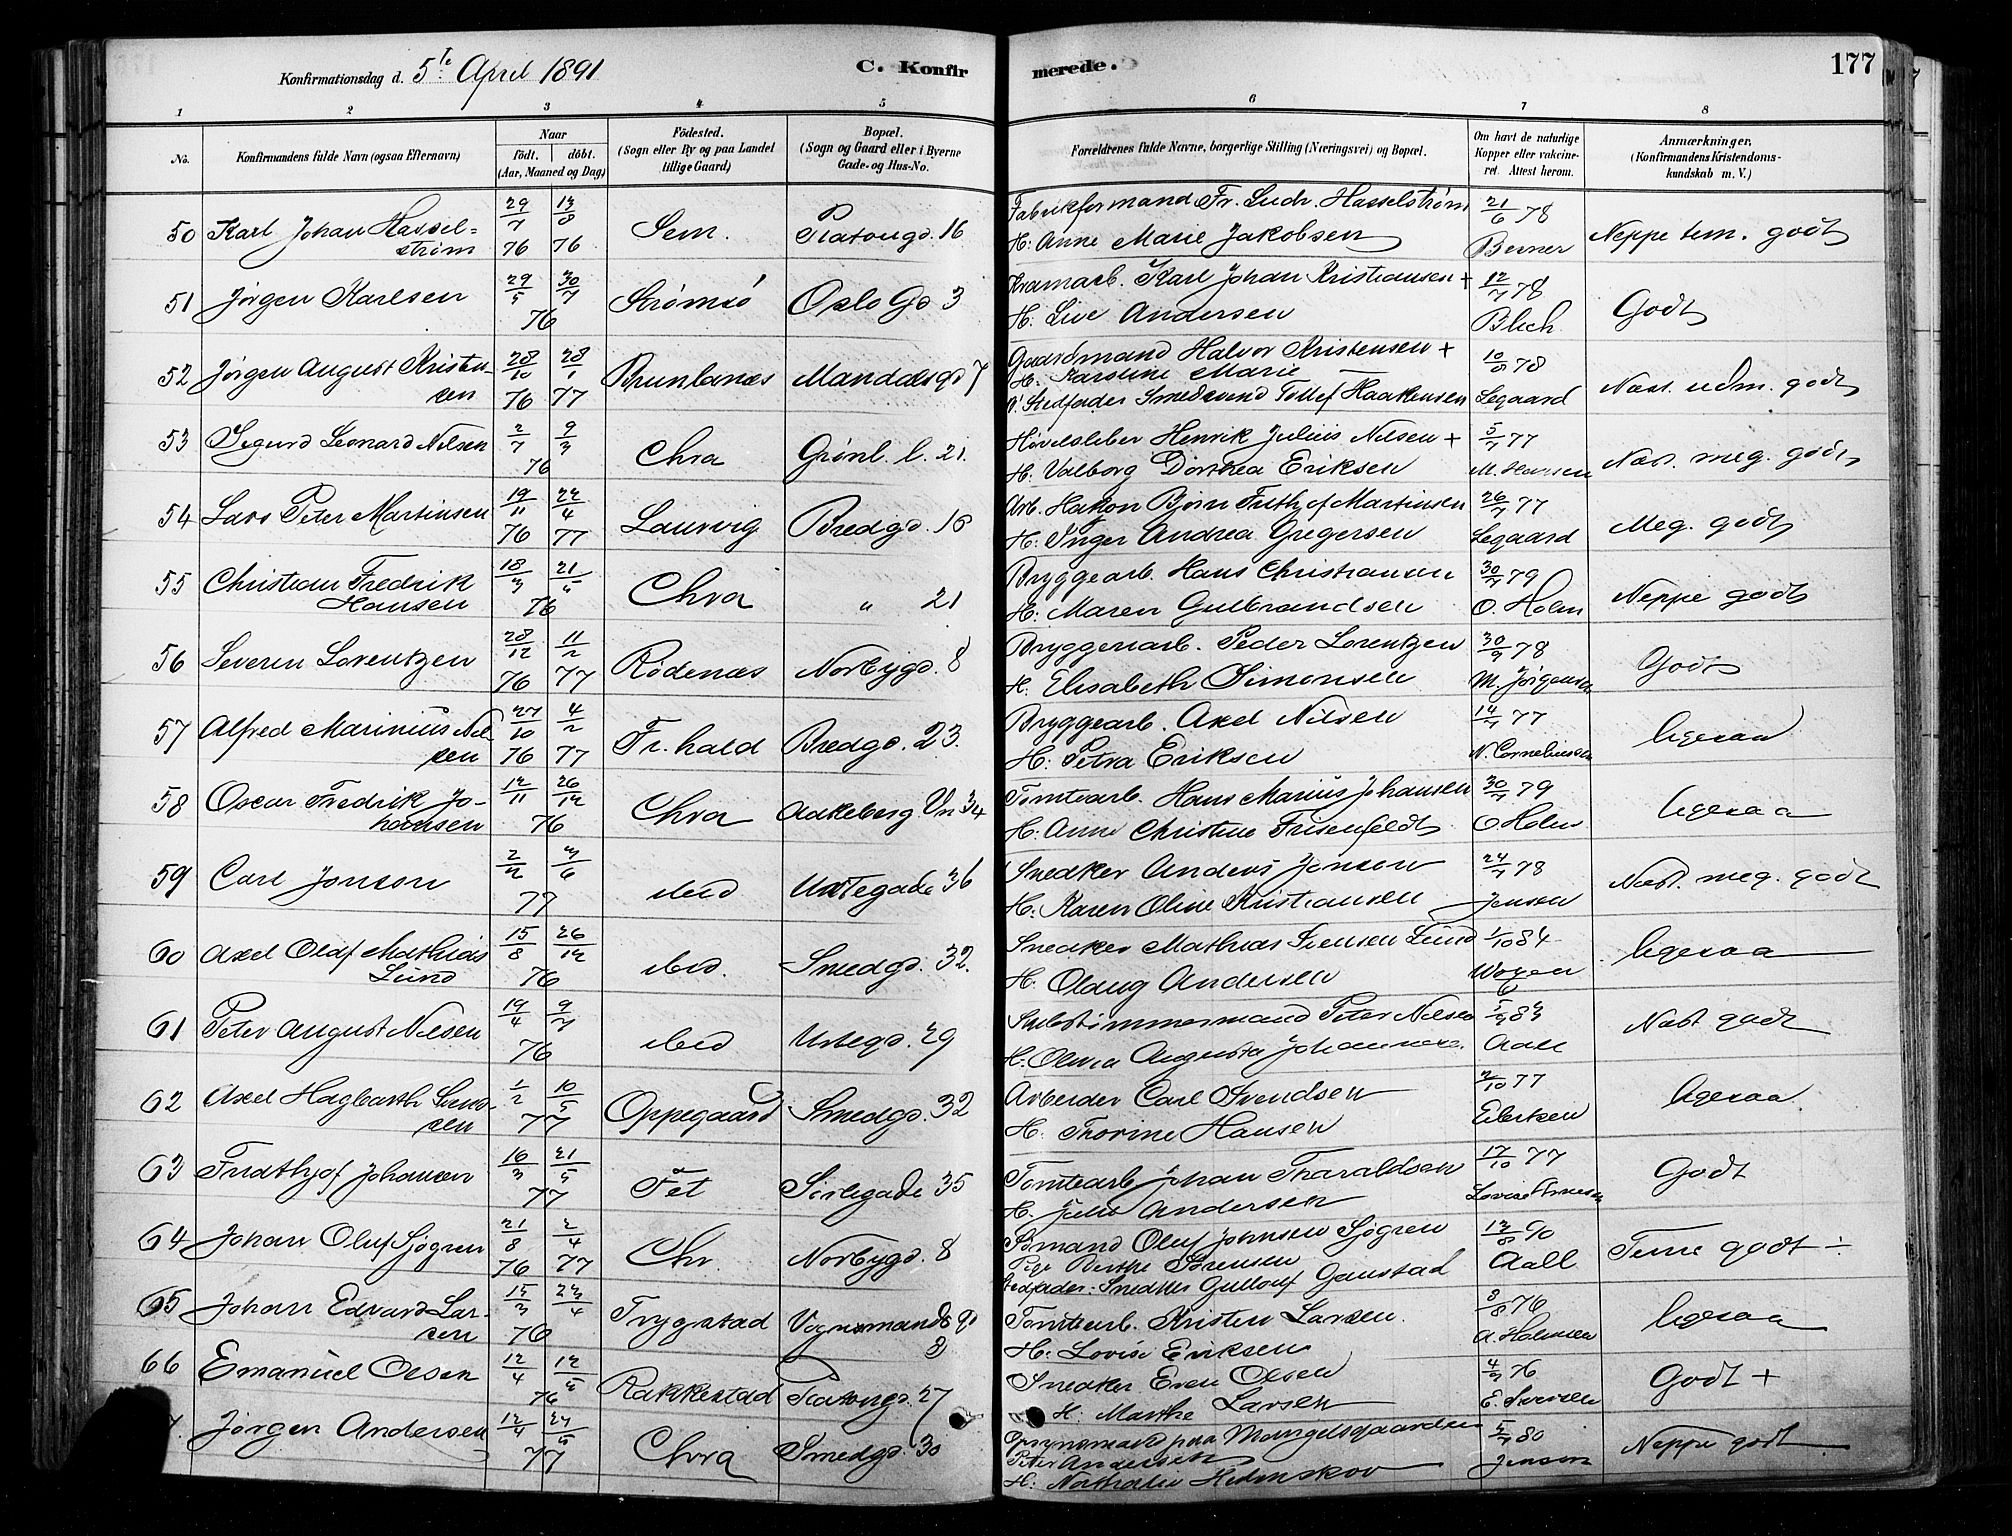 Konfirmationsdag d. 5te April 1891
C. Konfirmerede.
177
1 2 3 4 5 6 7 8
No.
Konfirmandens fulde Navn (ogsaa Efternavn)
Naar
födt. döbt.
(Aar, Maaned og Dag)
Födested.
(Sogn eller By og paa Landet
tillige Gaard)
Bopæl.
(Sogn og Gaard eller i Byerne
Gade- og Hus-No.
Forældrenes fulde Navne, borgerlige Stilling (Næringsvei) og Bopæl.
Om havt de naturlige
Kopper eller vakcine-
ret. Attest herom.
Anmærkninger,
(Konfirmandens Kristendoms-
kundskab m. V.)
50 Karl Johan Hassel-
strøm 29/7 76 13/8 76 Sem. Platougd. 16
Fabrikformand Fr. Ludv. Hasselstrøm
H: Anne Marie Jakobsen 21/6 78 Berner Neppe tem. godt
51 Jørgen Karlsen 29/5 30/7 76 Strømsö Oslo Gd 3
Kramarb. Karl Johan Kristiansen +
H: Live Andersen 12/7 78 Blich Godt
52 Jørgen August Kristen-
sen 28/10 76 28/1 77 Brunlanæs Mandalsgd 7
Gaardmand Halvor Kristensen +
H. Karoline Marie
Stedfader Smedsvend Tollef Haakensen 10/8 78 Legaard Næst. udm. godt
53 Sigurd Leonard Nilsen 2/7 9/3 76 Chra Grønl. l. 21.
Høvelsliber Henrik Julius Nilsen +
H. Valborg Dorthea Eriksen 5/7 77 M. Hansen Næst. meg. godt
54 Lars Peter Martinsen 19/11 76 22/4 77 Laurvig Bredgd. 16
Arb. Hakon Bjørn Frithjof Martinsen
H: Inger Andrea Gregersen 26/7 77 Legaard Meg. godt
55 Christian Fredrik
Hansen 18/3 21/5 76 Chra " 21
Bryggearb. Hans Christiansen
H: Maren Gulbrandsen 30/7 79 O. Holm Neppe godt
56 Severin Lorentzen 28/12 76 11/2 77 Rödenæs Norbygd. 8
Bryggeriarb. Peder Lorentzen
H. Elisabeth Simonsen 30/9 78 M. Jörgensen Godt
57 Alfred Marinius Nil-
sen 27/10 76 4/2 77 Fr.hald Bredgd. 23.
Bryggearb. Axel Nilsen
H: Petra Eriksen 14/7 77 N. Corneliussen ligesaa
58 Oscar Fredrik Jo-
hansen 12/11 26/12 76 Chra Aakeberg Vn 34
Tomtearb. Hans Marius Johansen
H: Anne Christine Frisenfeldt 30/7 79 O. Holm ligesaa
59 Carl Jonson 2/2 3/6 77 ibid Urtegade 36
Snedker Anders Jonson
H: Karen Oline Kristiansen 24/7 78 Jensen Næst. meg. godt
60 Axel Olaf Mathias
Lund 15/8 26/12 76 ibid. Smedgd. 32.
Snedker Mathias Svensen Lund
H: Olaug Andersen 1/10 84 ligesaa
61 Peter August Nilsen 19/4 9/7 76 ibid Urtegd. 29
Skibstimmermand Peter Nilsen
H: Olivia Augusta Johannesen 5/9 83 Aall Næst godt
62 Axel Hagbarth Svend-
sen 1/2 10/5 77 Oppegaard Smedgd. 32
Arbeider Carl Svendsen
H: Thorine Hansen 2/10 77 Eilertsen ligesaa
63 Fridthjof Johansen 16/3 21/5 77 Fet Sörligade 35
Tomtearb. Johan Tharaldsen
H. Julie Andersen 17/10 77 Godt
64 Johan Oluf Sjøgren 21/8 76 2/4 77 Chr. Norbygd. 8
Sömand Oluf Johnsen Sjøgren
Pige Berthe Sörensen
Stedfader: Snedker Gullouf Gaustad 13/8 90 Aall Teme godt ÷
65 Johan Edvard Lar-
sen 15/3 23/4 76 Trygstad Vognmandsgd
3
Tomtearb. Kristen Larsen.
H: Lovise Eriksen 3/8 76 A. Holmsen ligesaa
66 Emanuel Olsen 12/4 12/5 76 Rakkestad Platougd. 27
Snedker Even Olsen
H: Marthe Larsen 4/9 76 E. Iversen Godt +
Jørgen Andersen 12/4 77 Chra Smedgd. 30
Opsynsmand paa Mangelsgaarden
Peter Andersen
H: Nathalie 5/7 80 Jensen Neppe godt